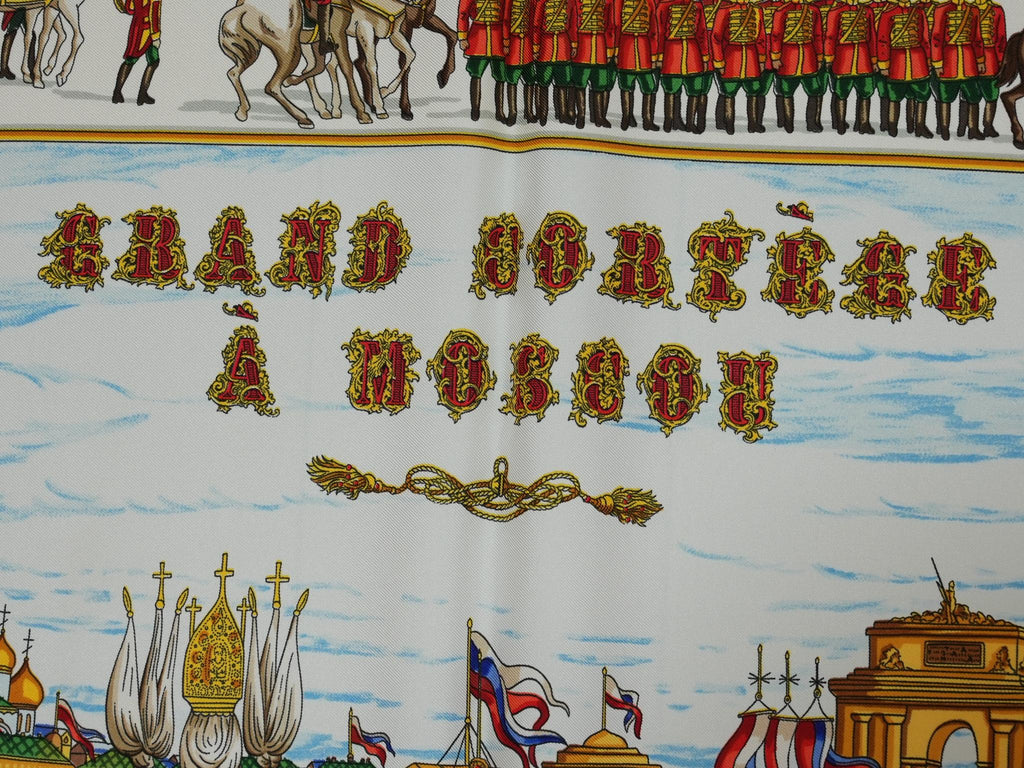 GRAND CORTÈGE
À MOSCOU